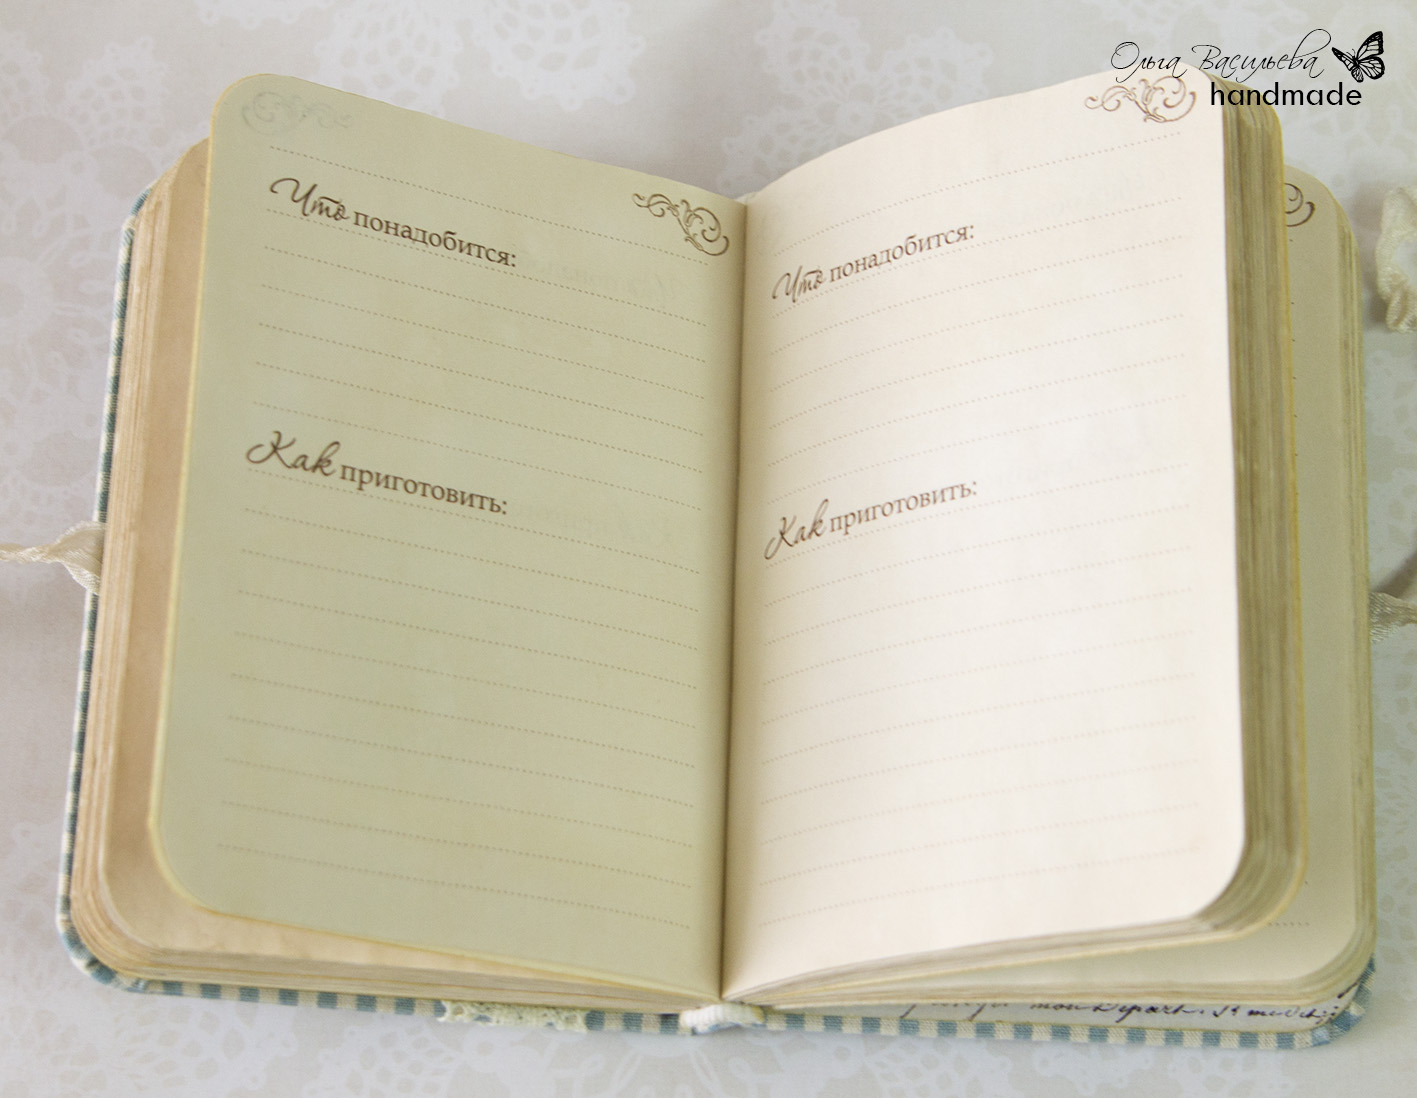 Ольга Васильева
handmade
Что понадобится:
Как приготовить:
Что понадобится:
Как приготовить:
mon Départ.